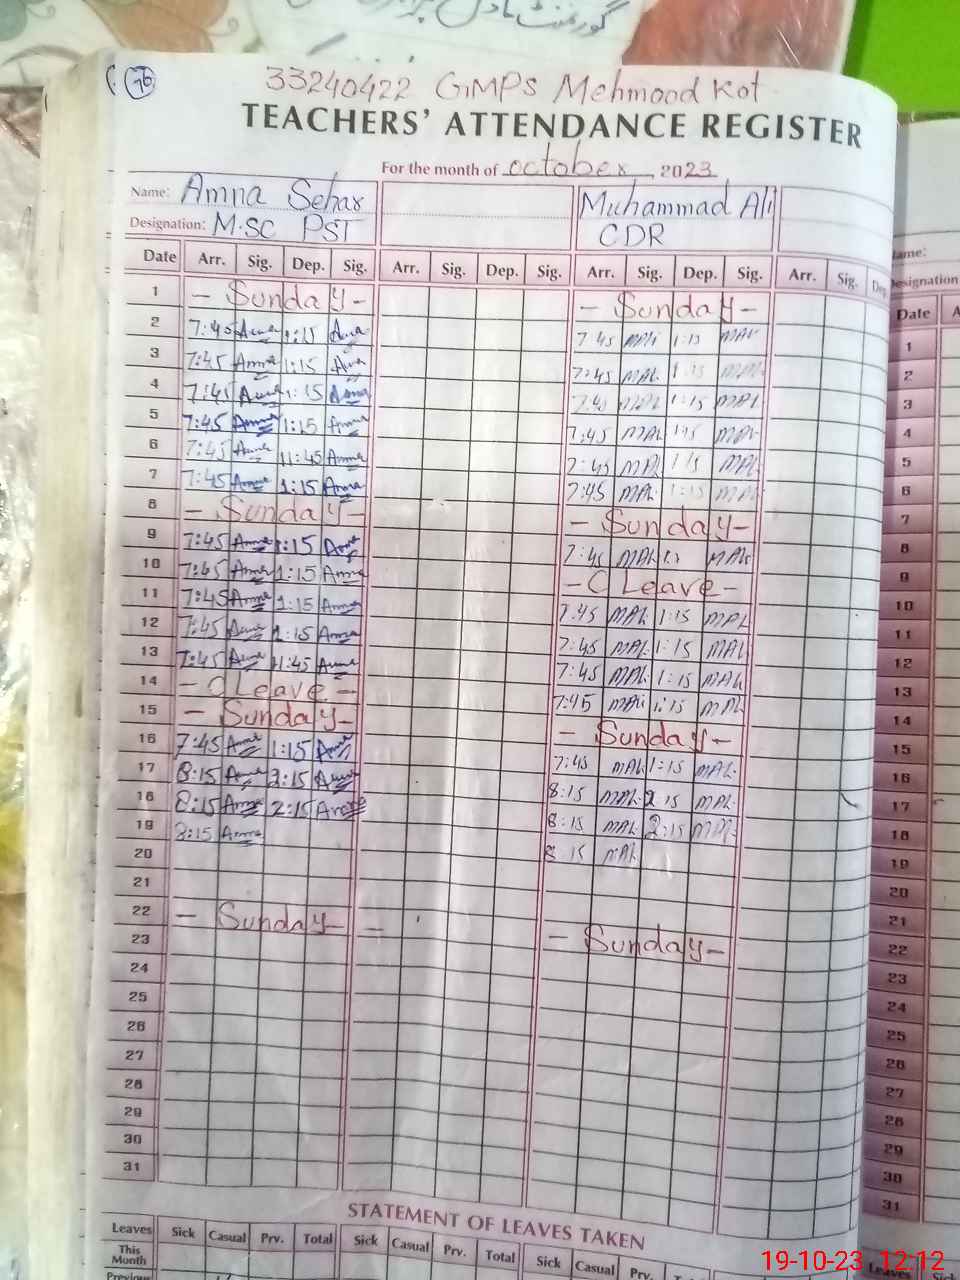 76
33240422 GMPS Mehmood Kot
TEACHERS' ATTENDANCE REGISTER
For the month of October 2023
Name: Amna Sehar Muhammad Ali
Designation: M.SC PST CDR
Date Arr. Sig. Dep. Sig. Arr. Sig. Dep. Sig. Arr. Sig. Dep. Sig. Arr. Sig. Dep.
1 - Sunday - - Sunday -
2 7:45 Amna 1:15 Amna 7:45 MAli 1:15 MAli
3 7:45 Amna 1:15 Amna 7:45 MAli 1:15 MAli
4 7:45 Amna 1:15 Amna 7:45 MAli 1:15 MAli
5 7:45 Amna 1:15 Amna 7:45 MAli 1:15 MAli
6 7:45 Amna 11:45 Amna 7:45 MAli MAli
7 7:45 Amna 1:15 Amna 7:45 MAli 1:15 MAli
8 - Sunday - - Sunday -
9 7:45 Amna 1:15 Amna 7:45 MAli MAli
10 7:45 Amna 1:15 Amna - C Leave -
11 7:45 Amna 1:15 Amna 7:45 MAli 1:15 MAli
12 7:45 Amna 1:15 Amna 7:45 MAli 1:15 MAli
13 7:45 Amna 11:45 Amna 7:45 MAli 1:15 MAli
14 - C Leave - 7:45 MAli 1:15 MAli
15 - Sunday - - Sunday -
16 7:45 Amna 1:15 Amna 7:45 MAli 1:15 MAli
17 8:15 Amna 2:15 Amna 8:15 MAli 2:15 MAli
18 8:15 Amna 2:15 Amna 8:15 MAli 2:15 MAli
19 8:15 Amna 8:15 MAli
20
21
22 - Sunday - - - Sunday -
23
24
25
26
27
28
29
30
31
STATEMENT OF LEAVES TAKEN
Leaves Sick Casual Prv. Total Sick Casual Prv. Total Sick Casual Prv.
This Month
Previous
Name:
Designation
Date
1
2
3
4
5
6
7
8
9
10
11
12
13
14
15
16
17
18
19
20
21
22
23
24
25
26
27
28
29
30
31
Leaves Sick
19-10-23 12:12